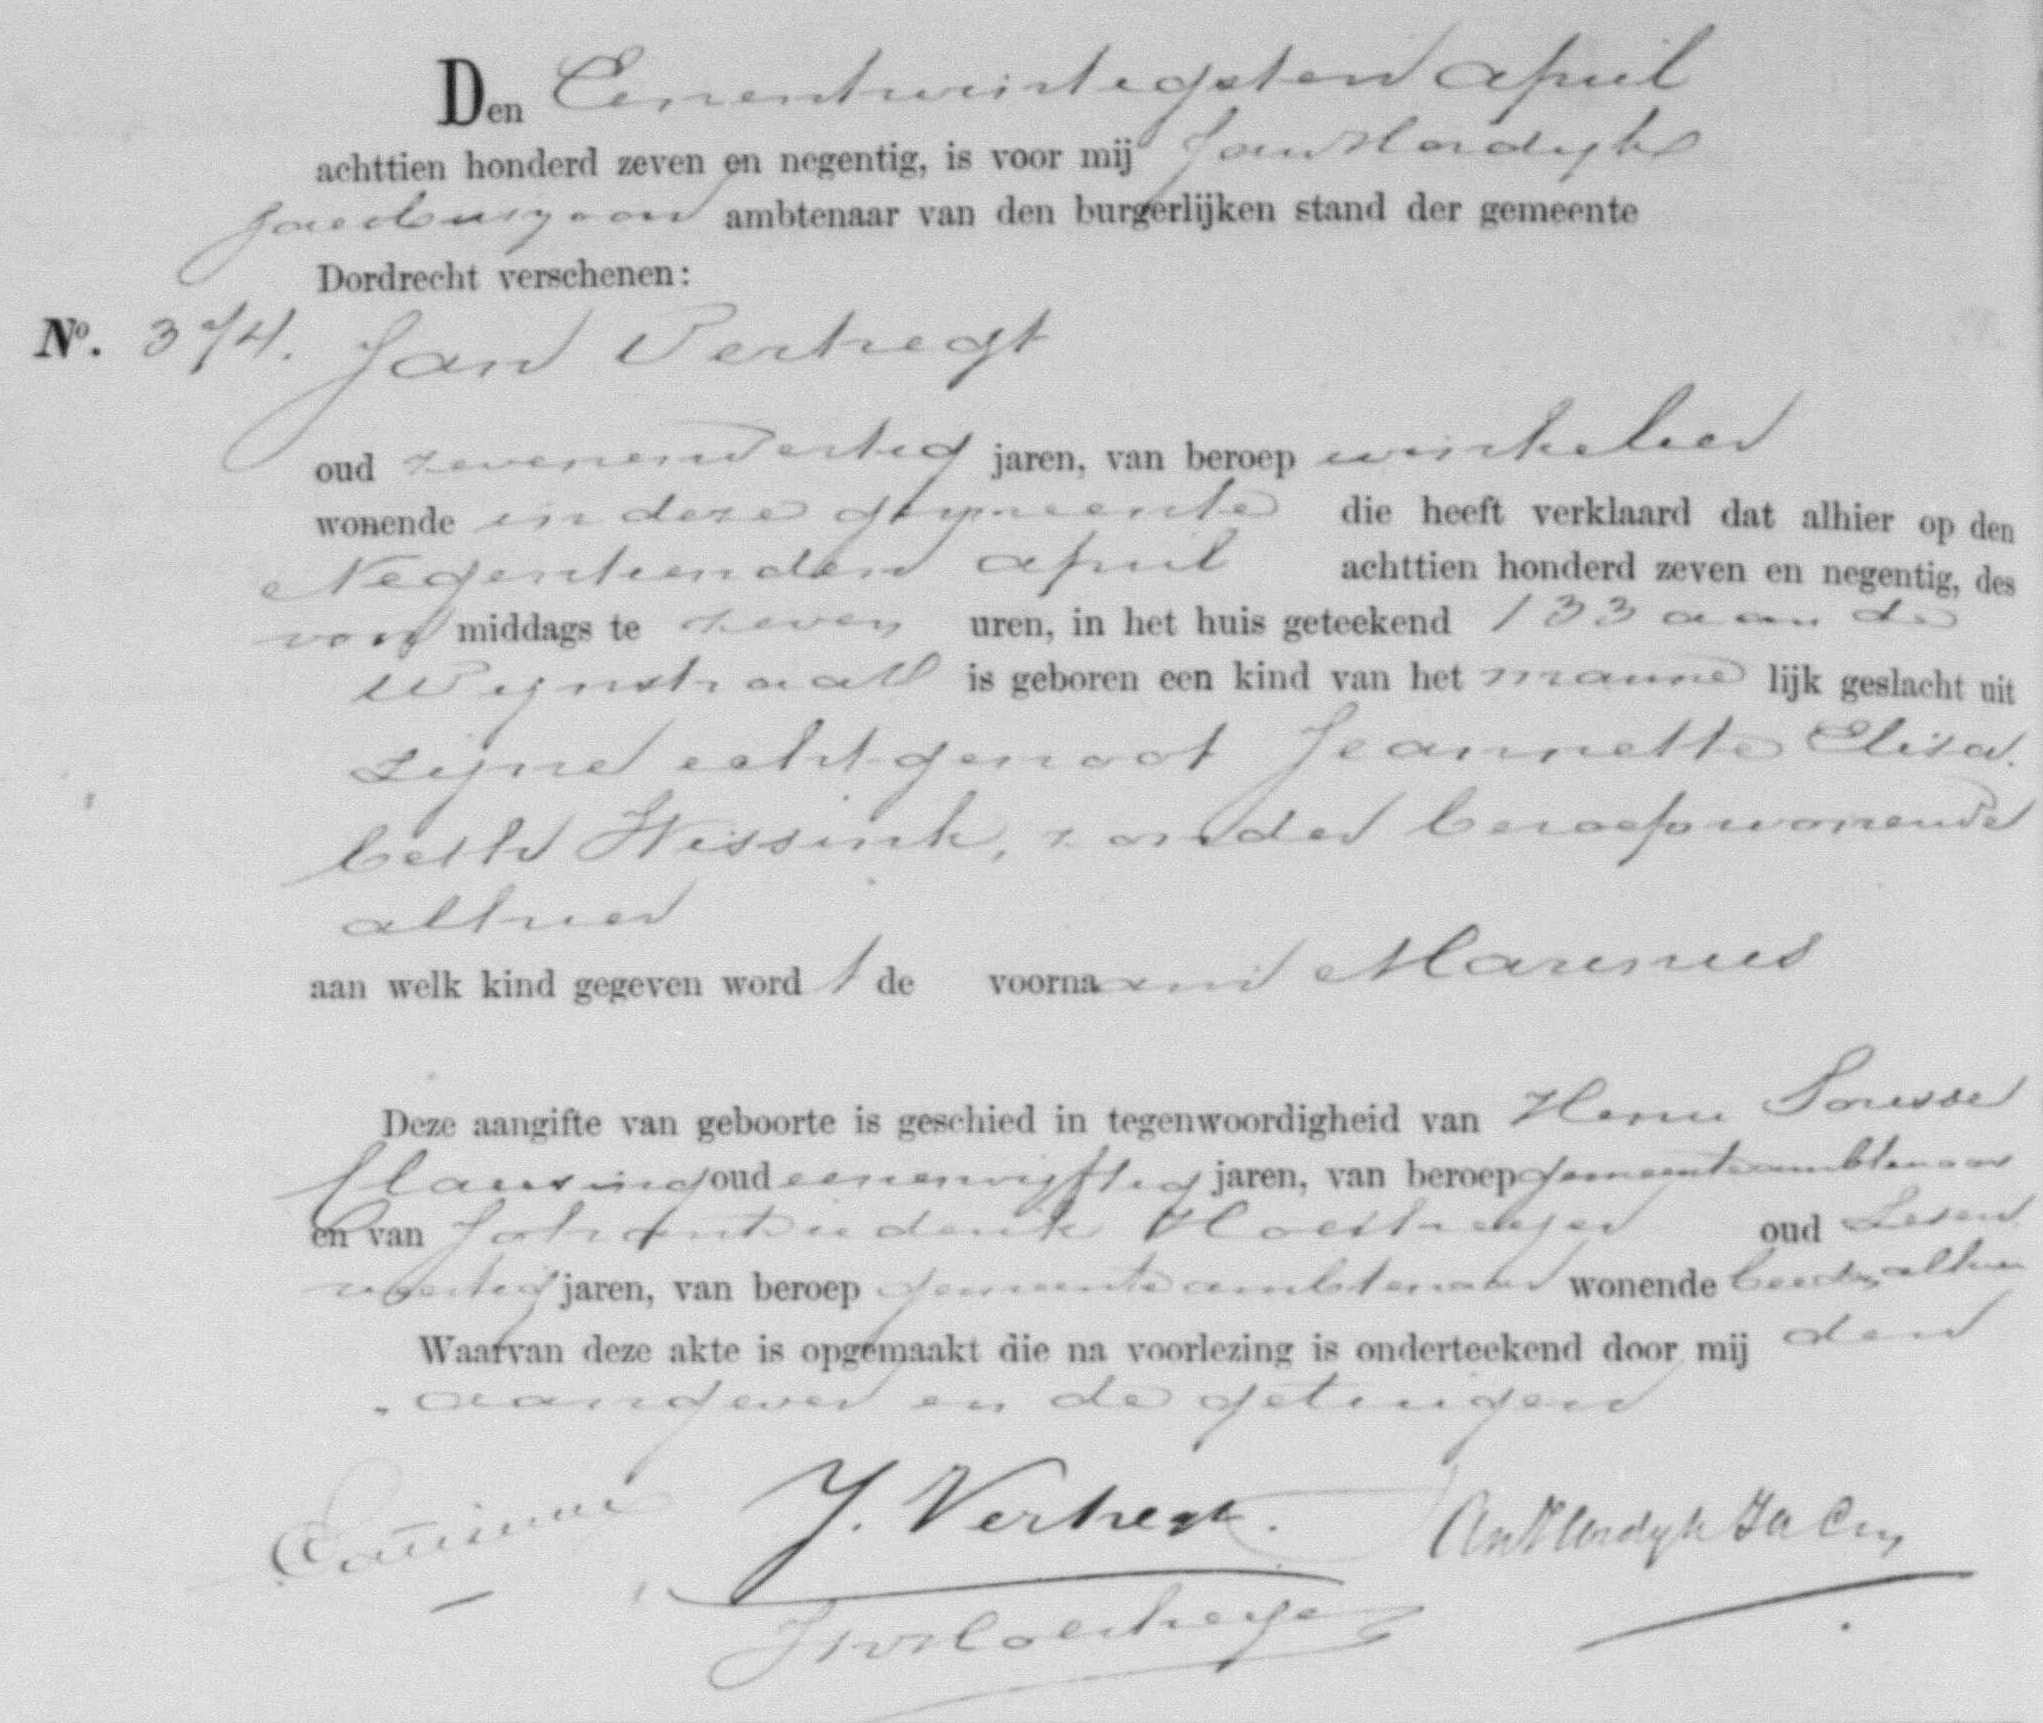 Den Eenentwintigsten April
achttien honderd zeven en negentig, is voor mij Jan Hordijk
Jacobuszoon ambtenaar van den burgerlijken stand der gemeente
Dordrecht verschenen:
No. 374. Jan Vertregt
oud zevenendertig jaren, van beroep winkelier
wonende in deze gemeente die heeft verklaard dat alhier op den
Negentienden April achttien honderd zeven en negentig, des
voor middags te zeven uren, in het huis geteekend 133 aan de
Wijnstraat is geboren een kind van het manne lijk geslacht uit
zijne echtgenoot Jeannette Elisa
beth Wissink, zonder beroep wonende
alhier
aan welk kind gegeven word t de voorna am Marinus
Deze aangifte van geboorte is geschied in tegenwoordigheid van
Clausing oud eenenvijftig jaren, van beroep gemeenteambtenaar
en van oud zesen
veertig jaren, van beroep gemeenteambtenaar wonende beiden alhier
Waarvan deze akte is opgemaakt die na voorlezing is onderteekend door mij den
aangever en de getuigen
J. Vertregt.